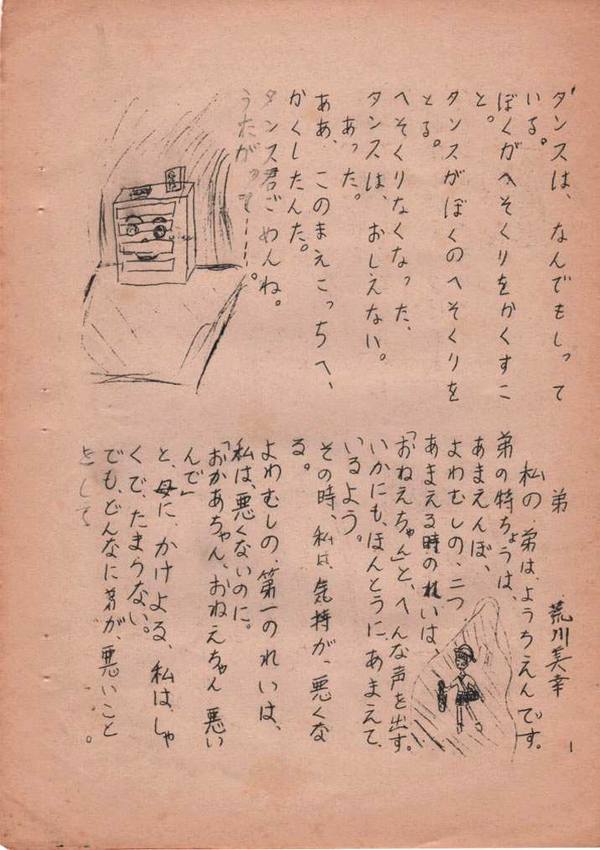 タンスは、なんでもしって
いる。
ぼくがへそくりをかくすこ
と。
タンスがぼくのへそくりを
とる。
へそくりなくなった、
タンスは、おしえない。
あった。
ああ、このまえこっちへ、
かくしたんだ。
タンス君ごめんね。
うたがって-----。
弟
荒川美幸
私の弟は、ようちえんです。
弟の特ちょうは、
あまえんぼ、
よわむしの、二つ
あまえる時のれいは、
「おねえちゃん」と、へんな声を出す。
いかにも、ほんとうに、あまえて、
いるよう。
その時、私は、気持が、悪くな
る。
よわむしの、第一のれいは、
私は、悪くないのに。
「おかあちゃん、おねえちゃん悪い
んで」
と、母に、かけよる、私は、しゃ
くで、たまらない。
でも、どんなに弟が、悪いこと
をして
。
1